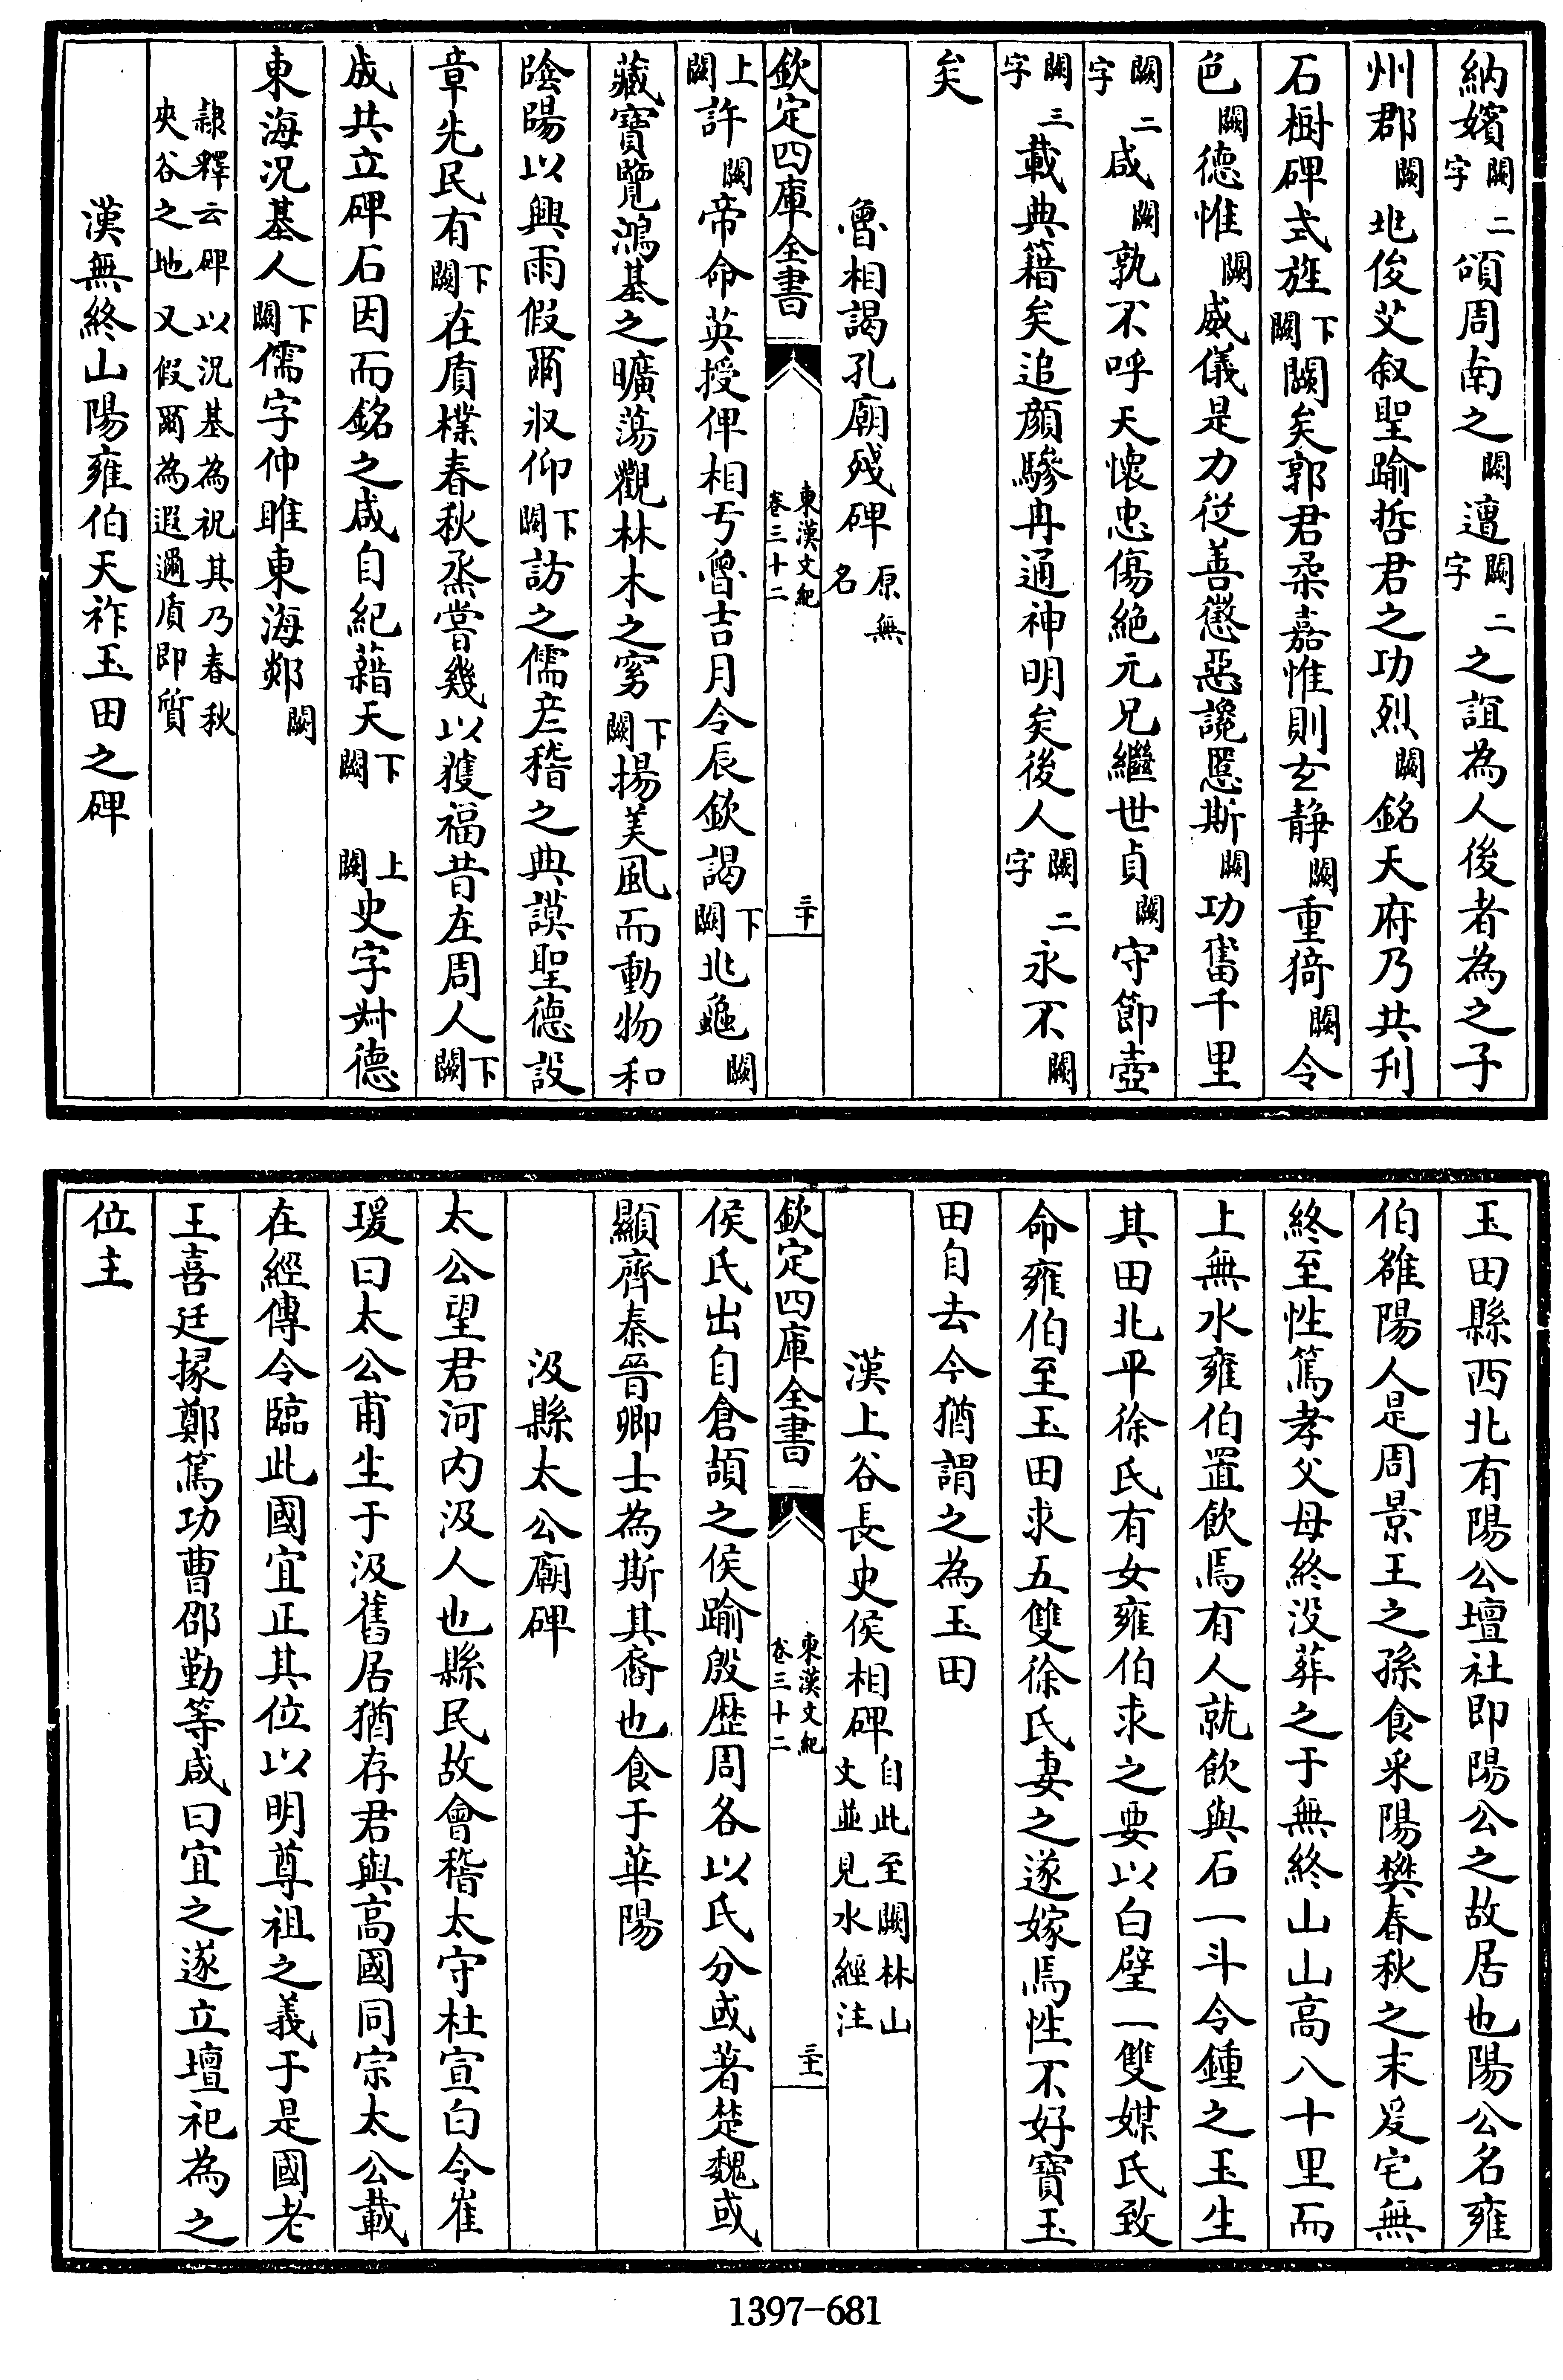 納嬪闕二字頌周南之闕遭闕二字之誼為人後者為之子
州郡闕北俊艾叙聖踰哲君之功烈闕銘天府乃共刋
石樹碑式旌下闕闕矣郭君柔嘉惟則玄静闕重猗闕令
色闕德惟闕威儀是力從善懲惡讒慝斯闕功奮千里
闕二字咸闕孰不呼天懷忠傷絶元兄繼世貞闕守節壺
闕三字載典籍矣追顔驂冉通神明矣後人闕二字永不闕
矣
魯相謁孔廟殘碑原無名
欽定四庫全書
東漢文紀
卷三十二
三十
上闕許闕帝命英授俾相于魯吉月令辰欽謁下闕北龜闕
藏寶覽鴻基之曠蕩觀林木之窈下闕揚美風而動物和
陰陽以興雨假爾攸仰下闕訪之儒彦稽之典謨聖德設
章先民有下闕在質樸春秋烝嘗幾以獲福昔在周人下闕
成共立碑石因而銘之咸自紀藉天下闕 上闕史字叔德
東海況基人下闕儒字仲雎東海郯闕
隷釋云碑以況基為祝其乃春秋
夾谷之地又假爾為遐邇質即質
漢無終山陽雍伯天祚玉田之碑
玉田縣西北有陽公壇社即陽公之故居也陽公名雍
伯雒陽人是周景王之孫食采陽樊春秋之末爰宅無
終至性篤孝父母終没葬之于無終山山高八十里而
上無水雍伯置飲焉有人就飲與石一斗令鍾之玉生
其田北平徐氏有女雍伯求之要以白璧一雙媒氏致
命雍伯至玉田求五雙徐氏妻之遂嫁焉性不好寶玉
田自去今猶謂之為玉田
漢上谷長史侯相碑自此至闕林山文並見水經注
欽定四庫全書
東漢文紀
卷三十二
三十一
侯氏出自倉頡之侯踰殷歴周各以氏分或著楚魏或
顯齊秦晉卿士為斯其裔也食于華陽
汲縣太公廟碑
太公望君河内汲人也縣民故會稽太守杜宣白令崔
瑗曰太公甫生于汲舊居猶存君與高國同宗太公載
在經傳令臨此國宜正其位以明尊祖之義于是國老
王喜廷掾鄭篤功曹邵勤等咸曰宜之遂立壇祀為之
位主
1397-681